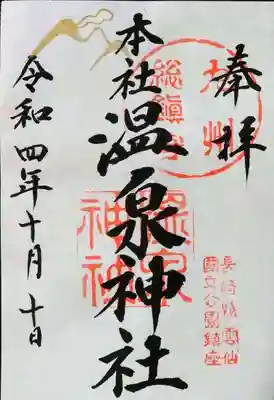 奉拝
九州
總鎮守
本社 温泉神社
温泉
神社
長崎県雲仙
國立公園鎮座
令和四年十月十日